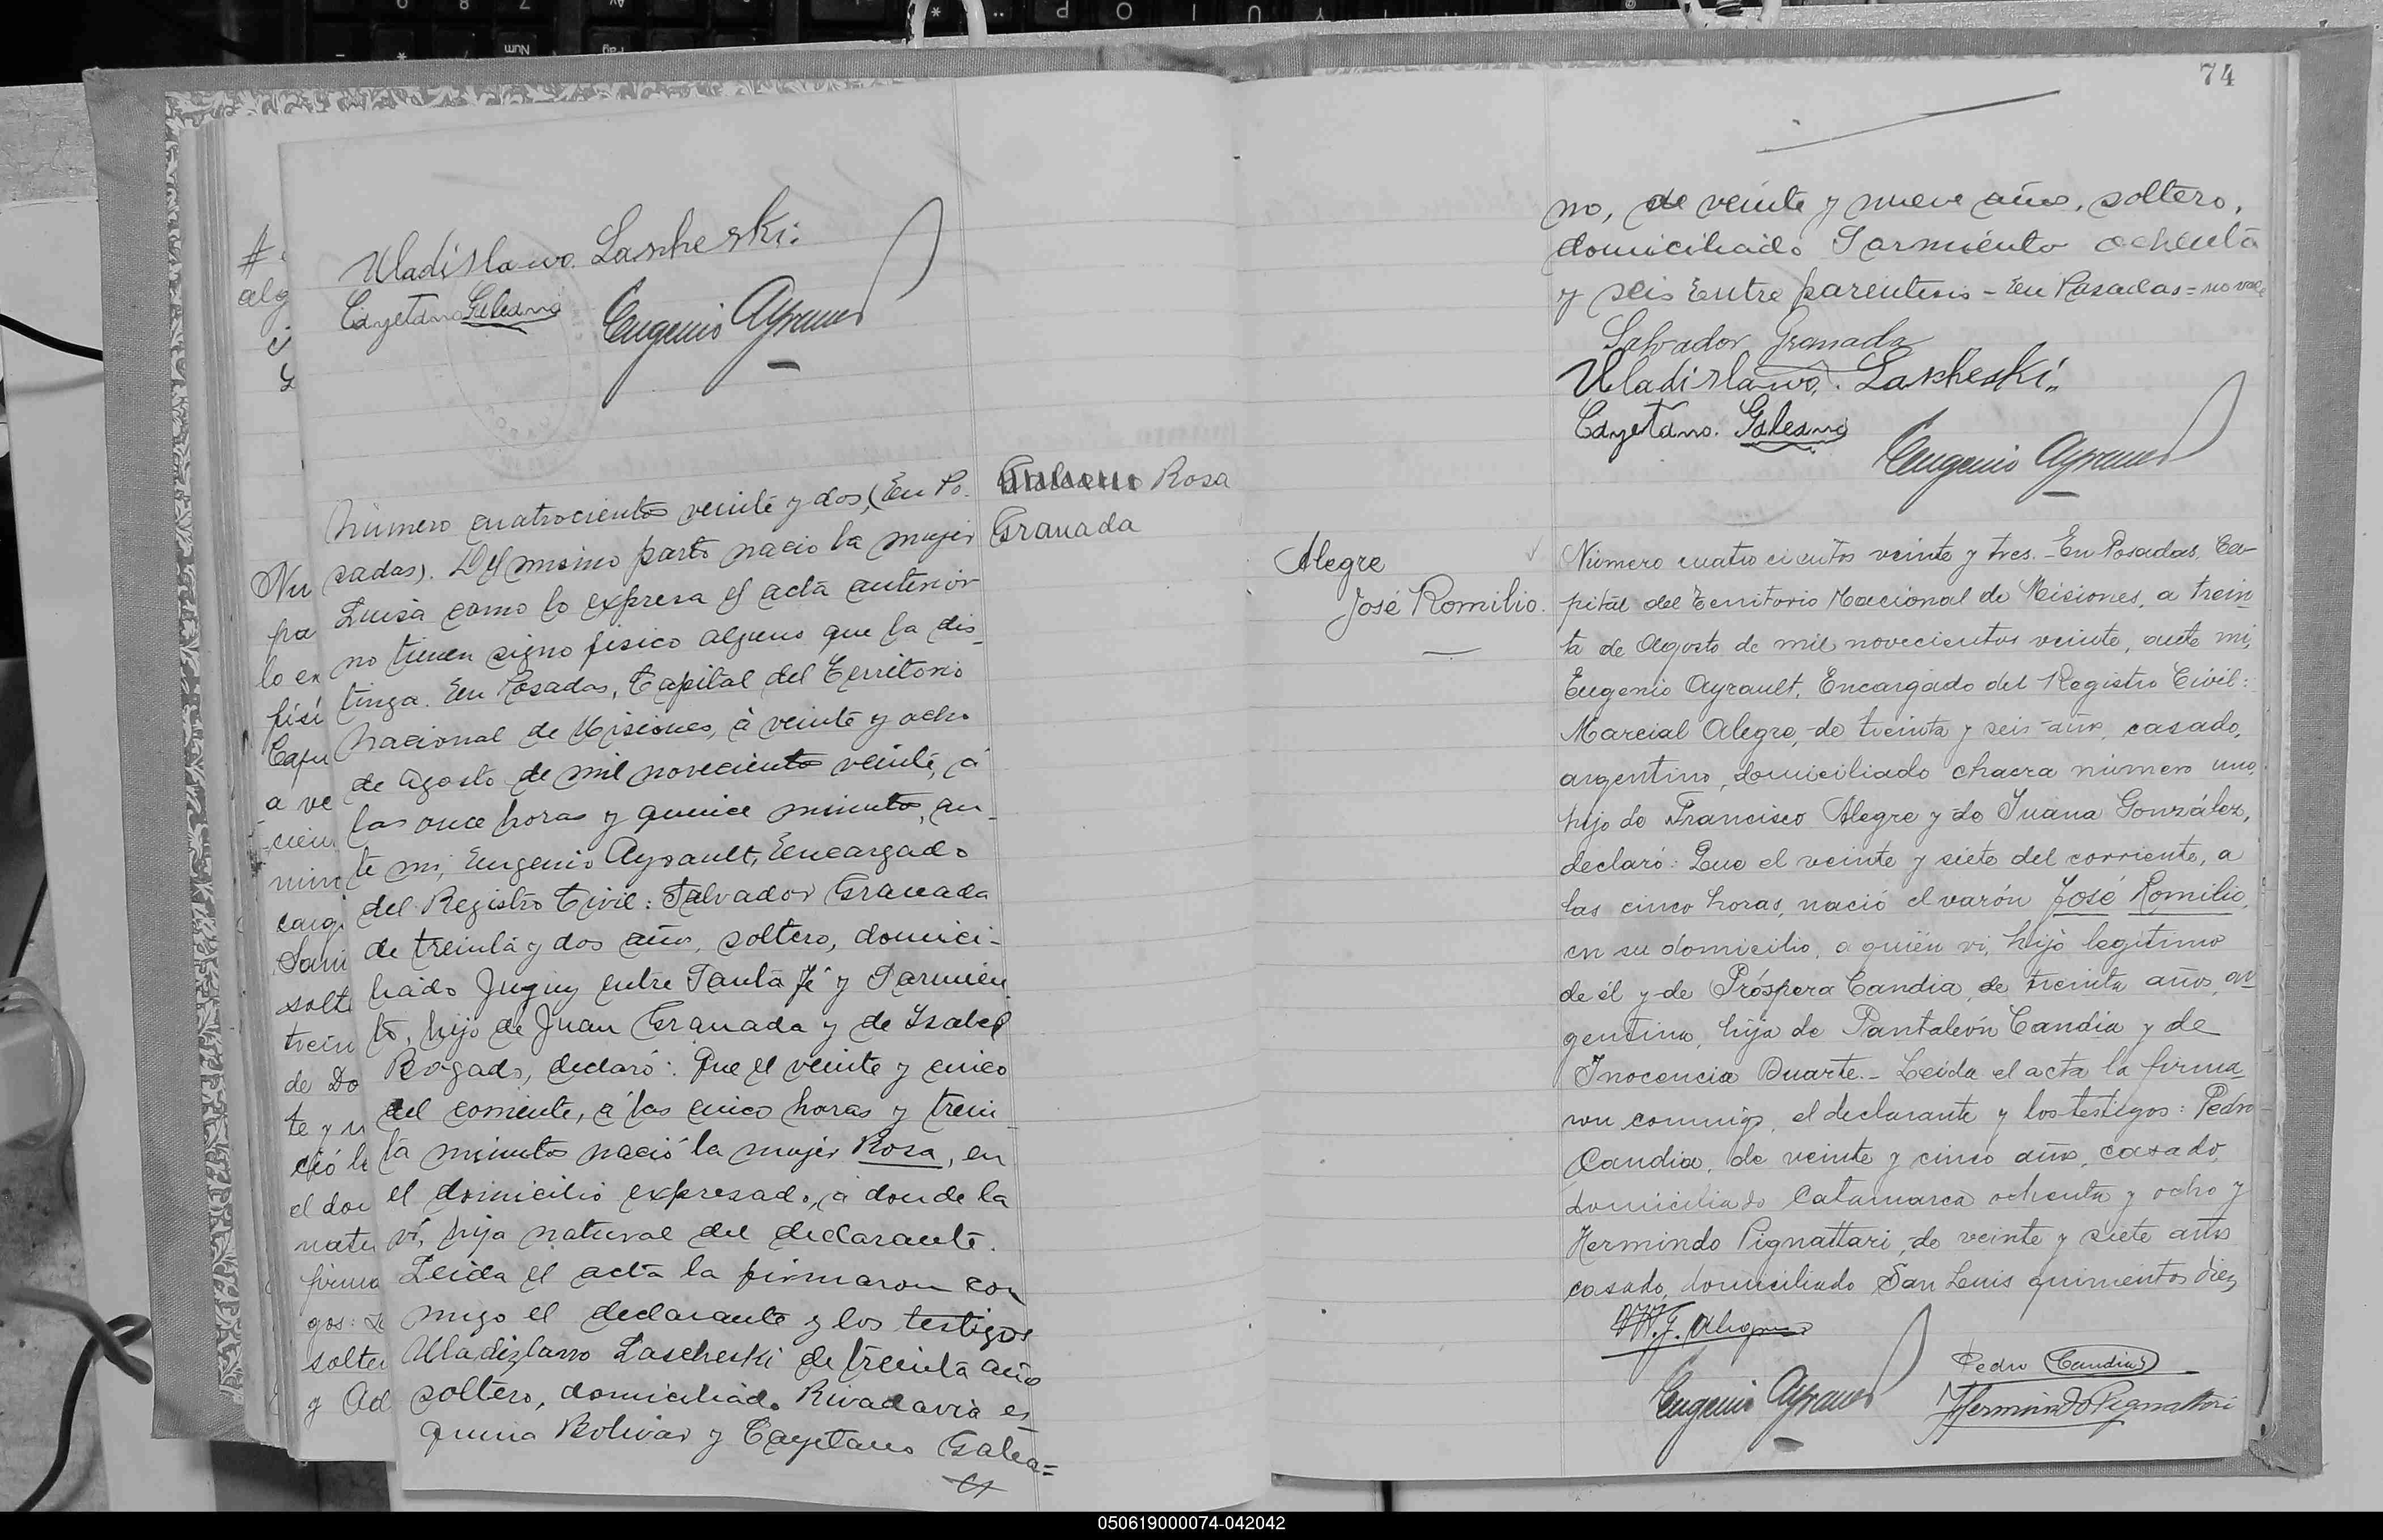 Uladislawo. Lascheski.
Cayetano Galeano
Eugenio Ayrault
Número cuatrocientos veinte y dos, (En Po-
sadas). Del mismo parto nacio la mujer
Luisa como lo expresa el acta anterior
no tienen signo fisico alguno que la dis-
tinga. En Posadas, Capital del Territorio
Nacional de Misiones, á veinte y ocho
de Agosto de mil novecientos veinte, á
las once horas y quince minutos, an-
te mi, Eugenio Ayrault, Encargado
del Registro Civil: Salvador Granada
de treinta y dos años, soltero, domici-
liado Jujuy entre Santa Fé y Sarmien
to, hijo de Juan Granada y de Isabel
Bogado, declaró: Que el veinte y cinco
del corriente, á las cinco horas y trein-
ta minutos nació la mujer Rosa, en
el domicilio expresado, á donde la
vi, hija natural del declarante.
Leida el acta la firmaron con
migo el declarante y los testigos
Uladizlawo Lascheski de treinta años
soltero, domiciliado Rivadavia es
quina Bolivar y Cayetano Galea=
Rosa
Granada
74
no, de veinte y nueve años, soltero,
domiciliado Sarmiento ochenta
y seis Entre parentesis - En Posadas = no vale
Salvador Granada
Uladislawo. Lascheski.
Cayetano. Galeano
Eugenio Ayrault
Alegre
José Romilio.
Número cuatro cientos veinte y tres. - En Posadas, Ca-
pital del Territorio Nacional de Misiones, a trein-
ta de Agosto de mil novecientos veinte, ante mi,
Eugenio Ayrault, Encargado del Registro Civil:
Marcial Alegre, de treinta y seis años, casado,
argentino, domiciliado chacra número uno,
hijo de Francisco Alegre y de Juana González,
declaró: Que el veinte y siete del corriente, a
las cinco horas, nació el varón José Romilio,
en su domicilio, a quién vi, hijo legítimo
de él y de Próspera Candia, de treinta años, ar-
gentina, hija de Pantaleón Candia y de
Inocencia Duarte. - Leida el acta la firma-
ron conmigo, el declarante y los testigos: Pedro
Candia, de veinte y cinco años, casado,
domiciliado Catamarca ochenta y ocho y
Hermindo Pignattari, de veinte y siete años
casado, domiciliado San Luis quinientos diez
Pedro Candia
Eugenio Ayrault
Hermindo Pignattari
050619000074-042042